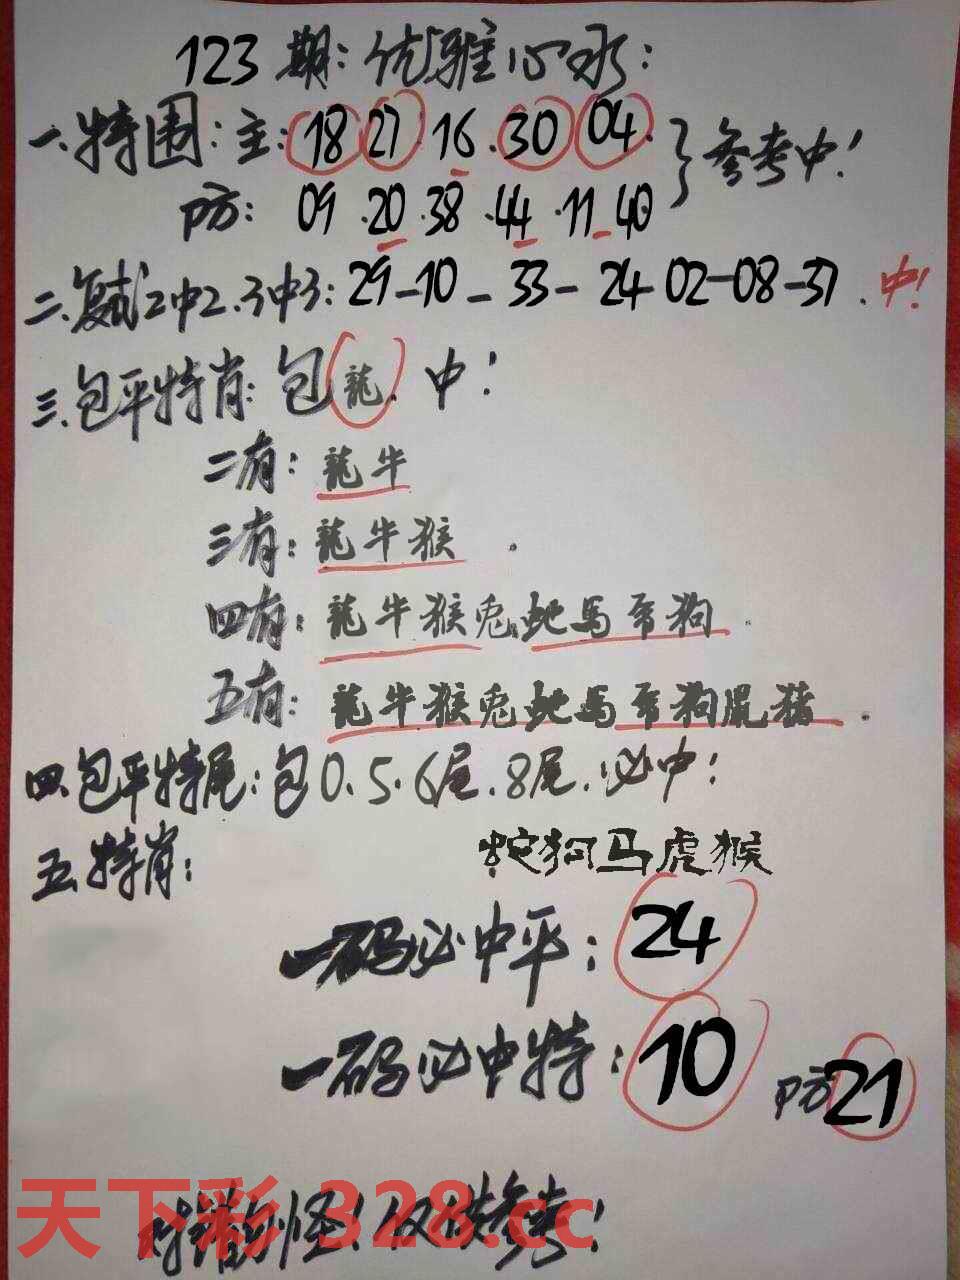 123期:优雅心水:
一.特围:主:18 27 16.30 04.}参考中!
防: 09.20.38.44.11.40
二.复式2中2.3中3:29-10-33-24-02-08-37.中!
三.包平特肖:包龍.中!
二有:龍牛
三有:龍牛猴.
四有:龍牛猴兎蛇馬帝狗.
五有:龍牛猴兎蛇馬帝狗鼠猪.
四.包平特尾:包0.5.6尾.8尾.必中!
五.特肖: 蛇狗马虎猴
一码必中平:24
一码必中特:10 防21
错勿怪!仅供参考!
天下彩 328.cc